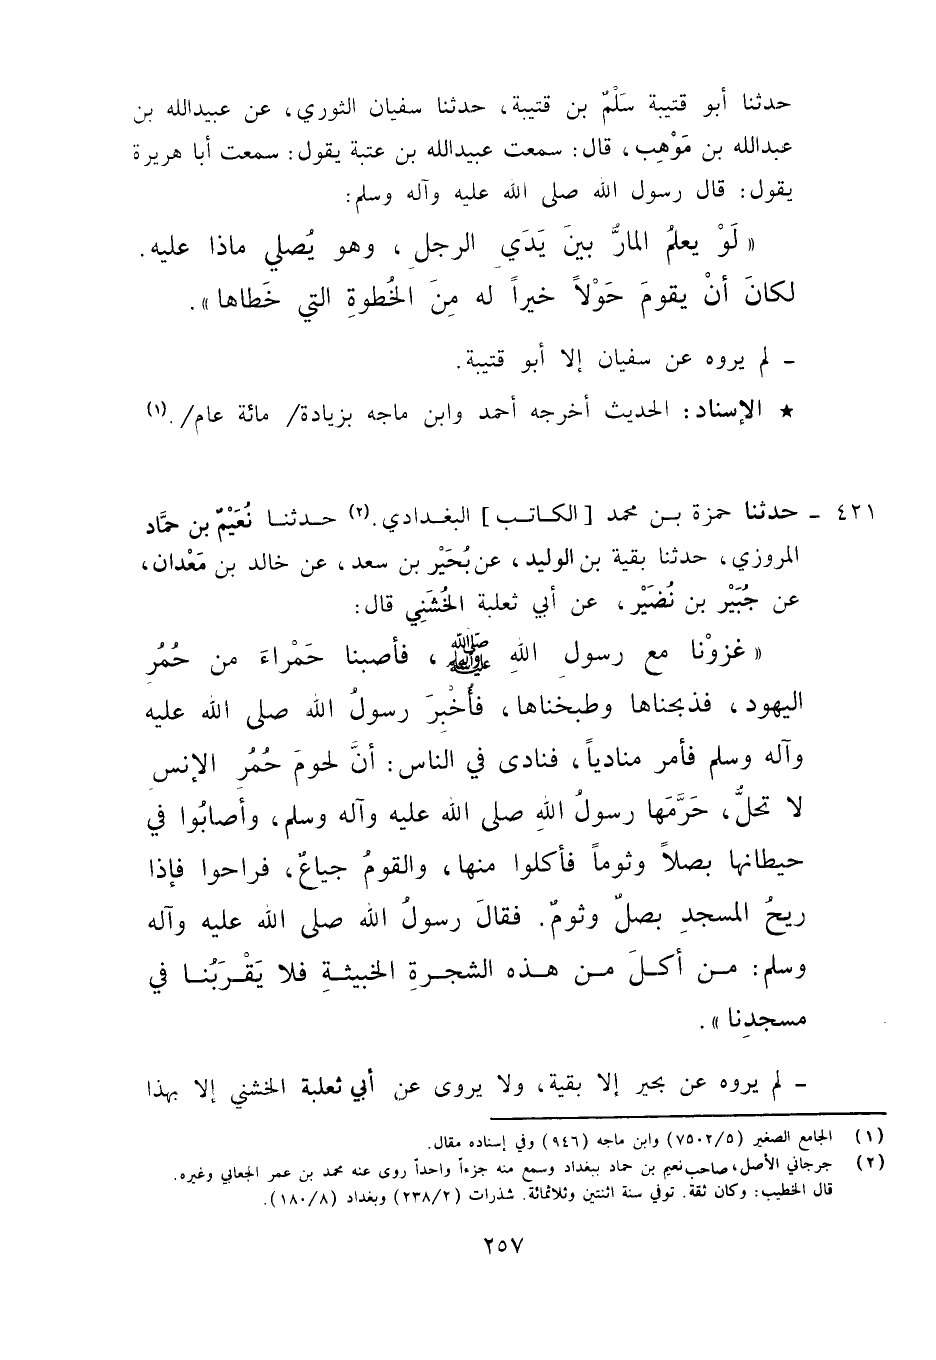 حدثنا أبو قتيبة سَلْمٌ بن قتيبة، حدثنا سفيان الثوري، عن عبيدالله بن
عبدالله بن مَوْهِب، قال: سمعت عبيدالله بن عتبة يقول: سمعت أبا هريرة
يقول: قال رسول الله صلى الله عليه وآله وسلم:
« لَوْ يعلمُ المارُّ بينَ يَدَيِ الرجلِ، وهو يُصلي ماذا عليه.
لكانَ أنْ يقومَ حَوْلاً خيراً له مِنَ الخُطوةِ التي خَطاها».
- لم يروه عن سفيان إلا أبو قتيبة.
★ الإسناد: الحديث أخرجه أحمد وابن ماجه بزيادة/ مائة عام/.(١)
٤٢١ - حدثنا حمزة بـن محمد [الكاتـب] البغـدادي.(٢) حـدثنـا نُعَيْمٌ بن حمَّاد
المروزي، حدثنا بقية بن الوليد، عن بُحَيْر بن سعد، عن خالد بن مَعْدان،
عن جُبَيْر بن نُضَيْر، عن أبي ثعلبة الخُشَني قال:
« غزوْنا مع رسولِ اللهِ ﷺ، فأصبنا حَمْراءَ من حُمُرِ
اليهود، فذبحناها وطبخناها، فأُخْبِرَ رسولُ الله صلى الله عليه
وآله وسلم فأمر منادياً، فنادى في الناس: أنَّ لحومَ حُمُرِ الإنسِ
لا تحلُّ، حَرَّمَها رسولُ اللهِ صلى الله عليه وآله وسلم، وأصابُوا في
حيطانها بصلاً وثوماً فأكلوا منها، والقومُ جياعٌ، فراحوا فإذا
ريحُ المسجدِ بصلٌ وثومٌ. فقالَ رسولُ الله صلى الله عليه وآله
وسلم: مـن أكـلَ مـن هـذه الشجـرةِ الخبيثـةِ فلا يَقْـرَبُنـا في
مسجدِنا».
- لم يروه عن بحير إلا بقية، ولا يروى عن أبي ثعلبة الخشني إلا بهذا
(١) الجامع الصغير (٧٥٠٢/٥) وابن ماجه (٩٤٦) وفي إسناده مقال.
(٢) جرجاني الأصل، صاحب نعيم بن حماد ببغداد وسمع منه جزءاً واحداً روى عنه محمد بن عمر الجعابي وغيره.
قال الخطيب: وكان ثقة. توفي سنة اثنتين وثلاثمائة. شذرات (٢٣٨/٢) وبغداد (١٨٠/٨).
٢٥٧